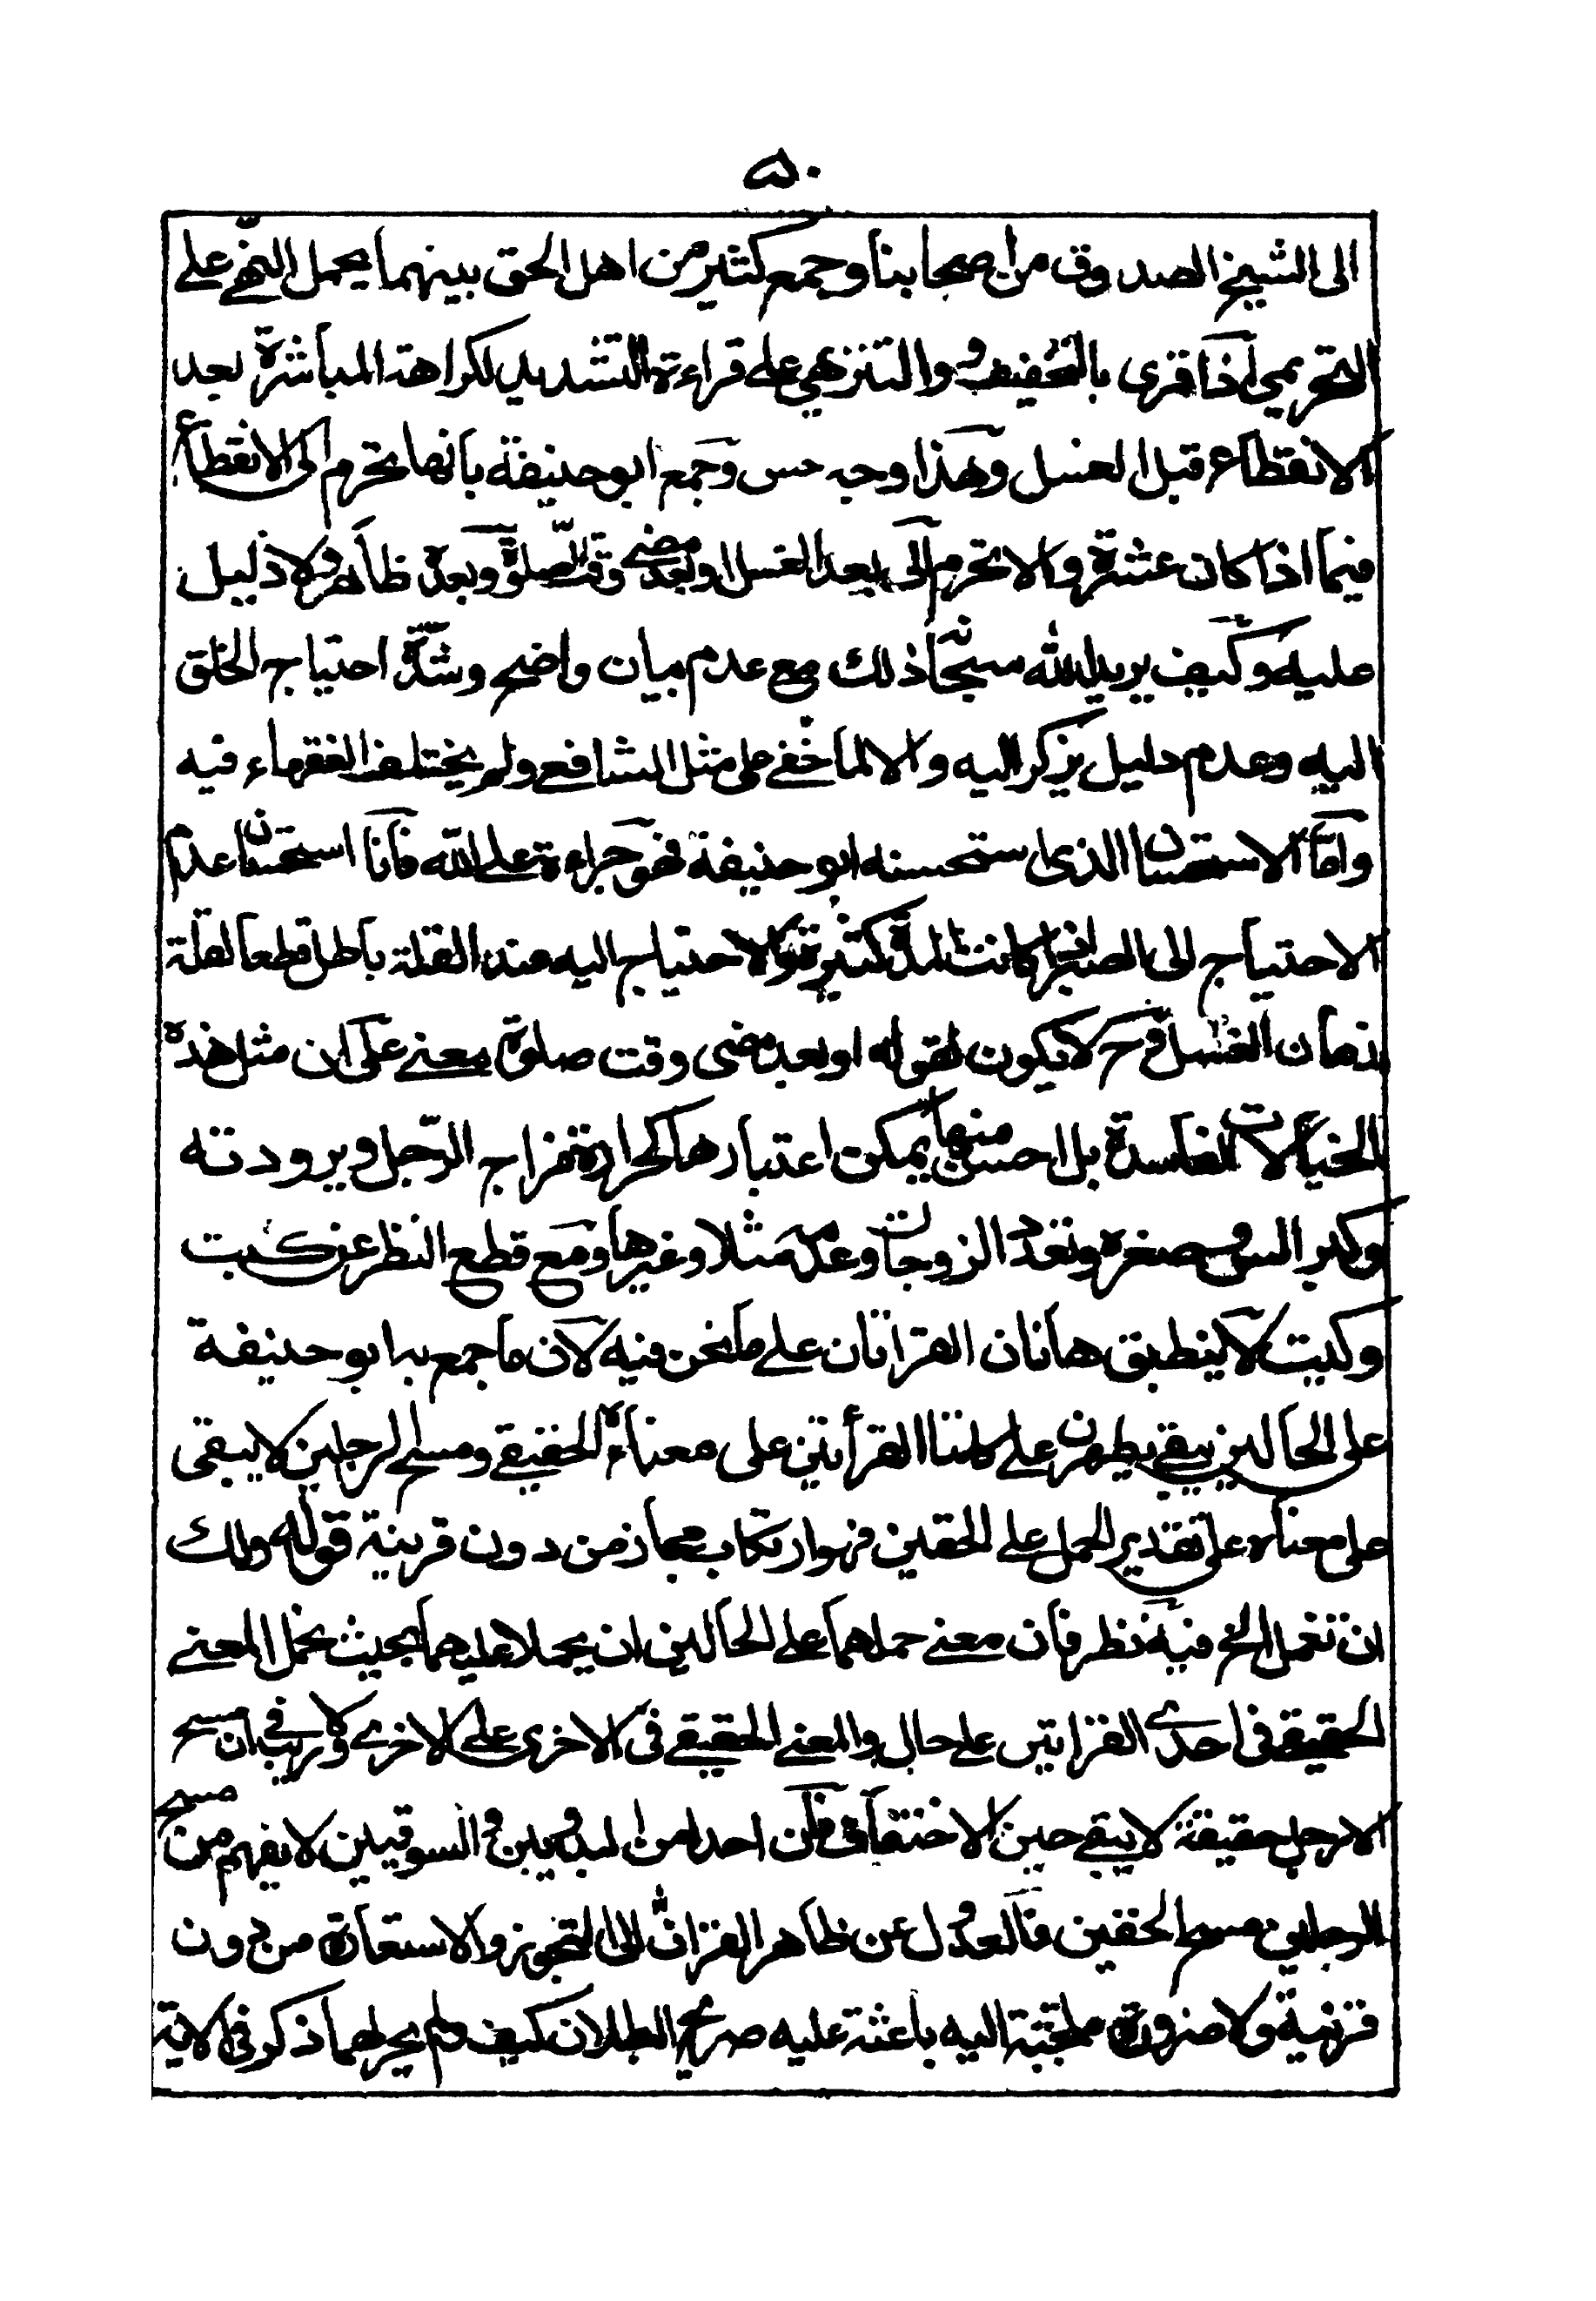 ۵۰
الى الشيخ الصدوق من اصحابنا وجمع كثير من اهل الحق بينهما بحمل النهى على
التحريمى اذا قرى بالتخفيف والتنزيهي على قراءة التشديد لكراهة المباشرة بعد
الانقطاع قبل الغسل وهذا وجه حسن وجمع ابو حنيفة بانها تحرم الى الانقطاع
فيما اذا كان عشرة والا تحرم الى بعد الغسل او بعد مضى وقت الصلوة وبعده ظاهر ولا دليل
عليه وكيف يريد الله سبحانه ذلك مع عدم بيان واضح وشدة احتياج الخلق
اليه وعدم دليل يركن اليه والا لما خفى على مثل الشافعى ولم يختلف الفقهاء فيه
واما الاستحسان الذى استحسنه ابو حنيفة فهو جراءة على الله فانا استحسان عدم
الاحتياج الى الصبر اذا كانت المدة كثيرة والاحتياج اليه عند القلة باطل قطعا لقلة
زمان الغسل وح لا يكون لقوله او بعد مضى وقت صلوة معنى على ان مثل هذه
الخيالات الفاسدة بل احسن منها يمكن اعتبارها كحرارة مزاج الرجل وبرودته
وكبر السن وصغره وتعدد الزوجات وعدمه مثلا وغيرها ومع قطع النظر عن كيت
وكيت لا ينطبق هاتان القراتان على ما نحن فيه لان ما جمع به ابو حنيفة
على الحالين يبقى يطهرن على كلتا القرأتين على معناه الحقيقى ومسح الرجلين لا يبقى
على معناه على تقدير الحمل على الخفين فهو ارتكاب مجاز من دون قرينة قوله ولك
ان تقول الخ فيه نظر فان معنى حملهما على الحالين ان يحملا عليهما بحيث يحمل المعنى
الحقيقى فى احدى القراتين على حال والمعنى الحقيقى فى الاخرى على الاخرى ولا ريب فى ان مسح
الارجل حقيقة لا يبقى حين الاختفاف فان احدا من البدويين والسوقيين لا يفهم من مسح
الرجلين مسح الخفين فالعدول عن ظاهر القران الى التجوز والاستعارة من دون
قرينة ولا ضرورة ملجئة اليه باعثة عليه صريح البطلان كيف ولم يجر لهما ذكر فى الاية